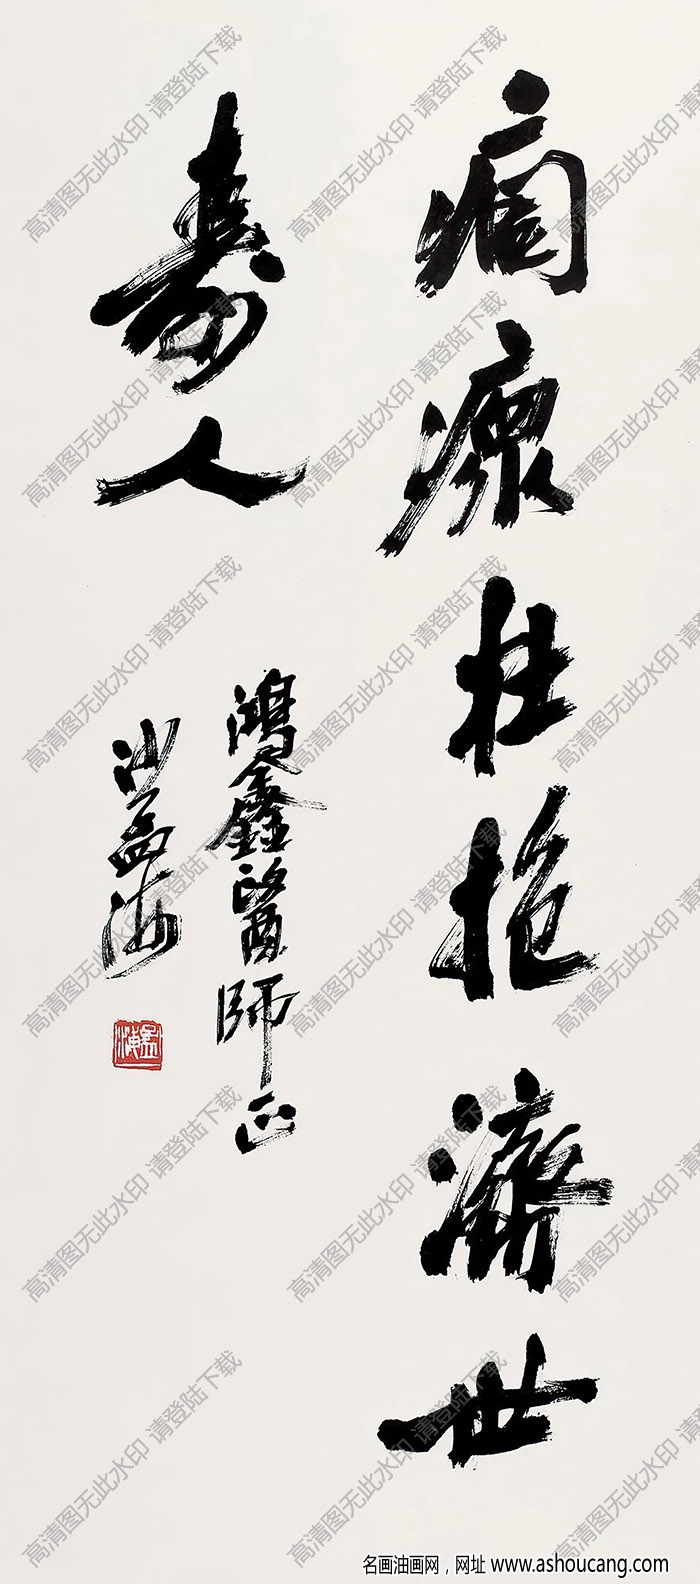 痌瘝在抱濟世
壽人
鴻鑫醫師正
沙孟海
孟海
高清图无此水印 请登陆下载
名画油画网，网址 www.ashoucang.com